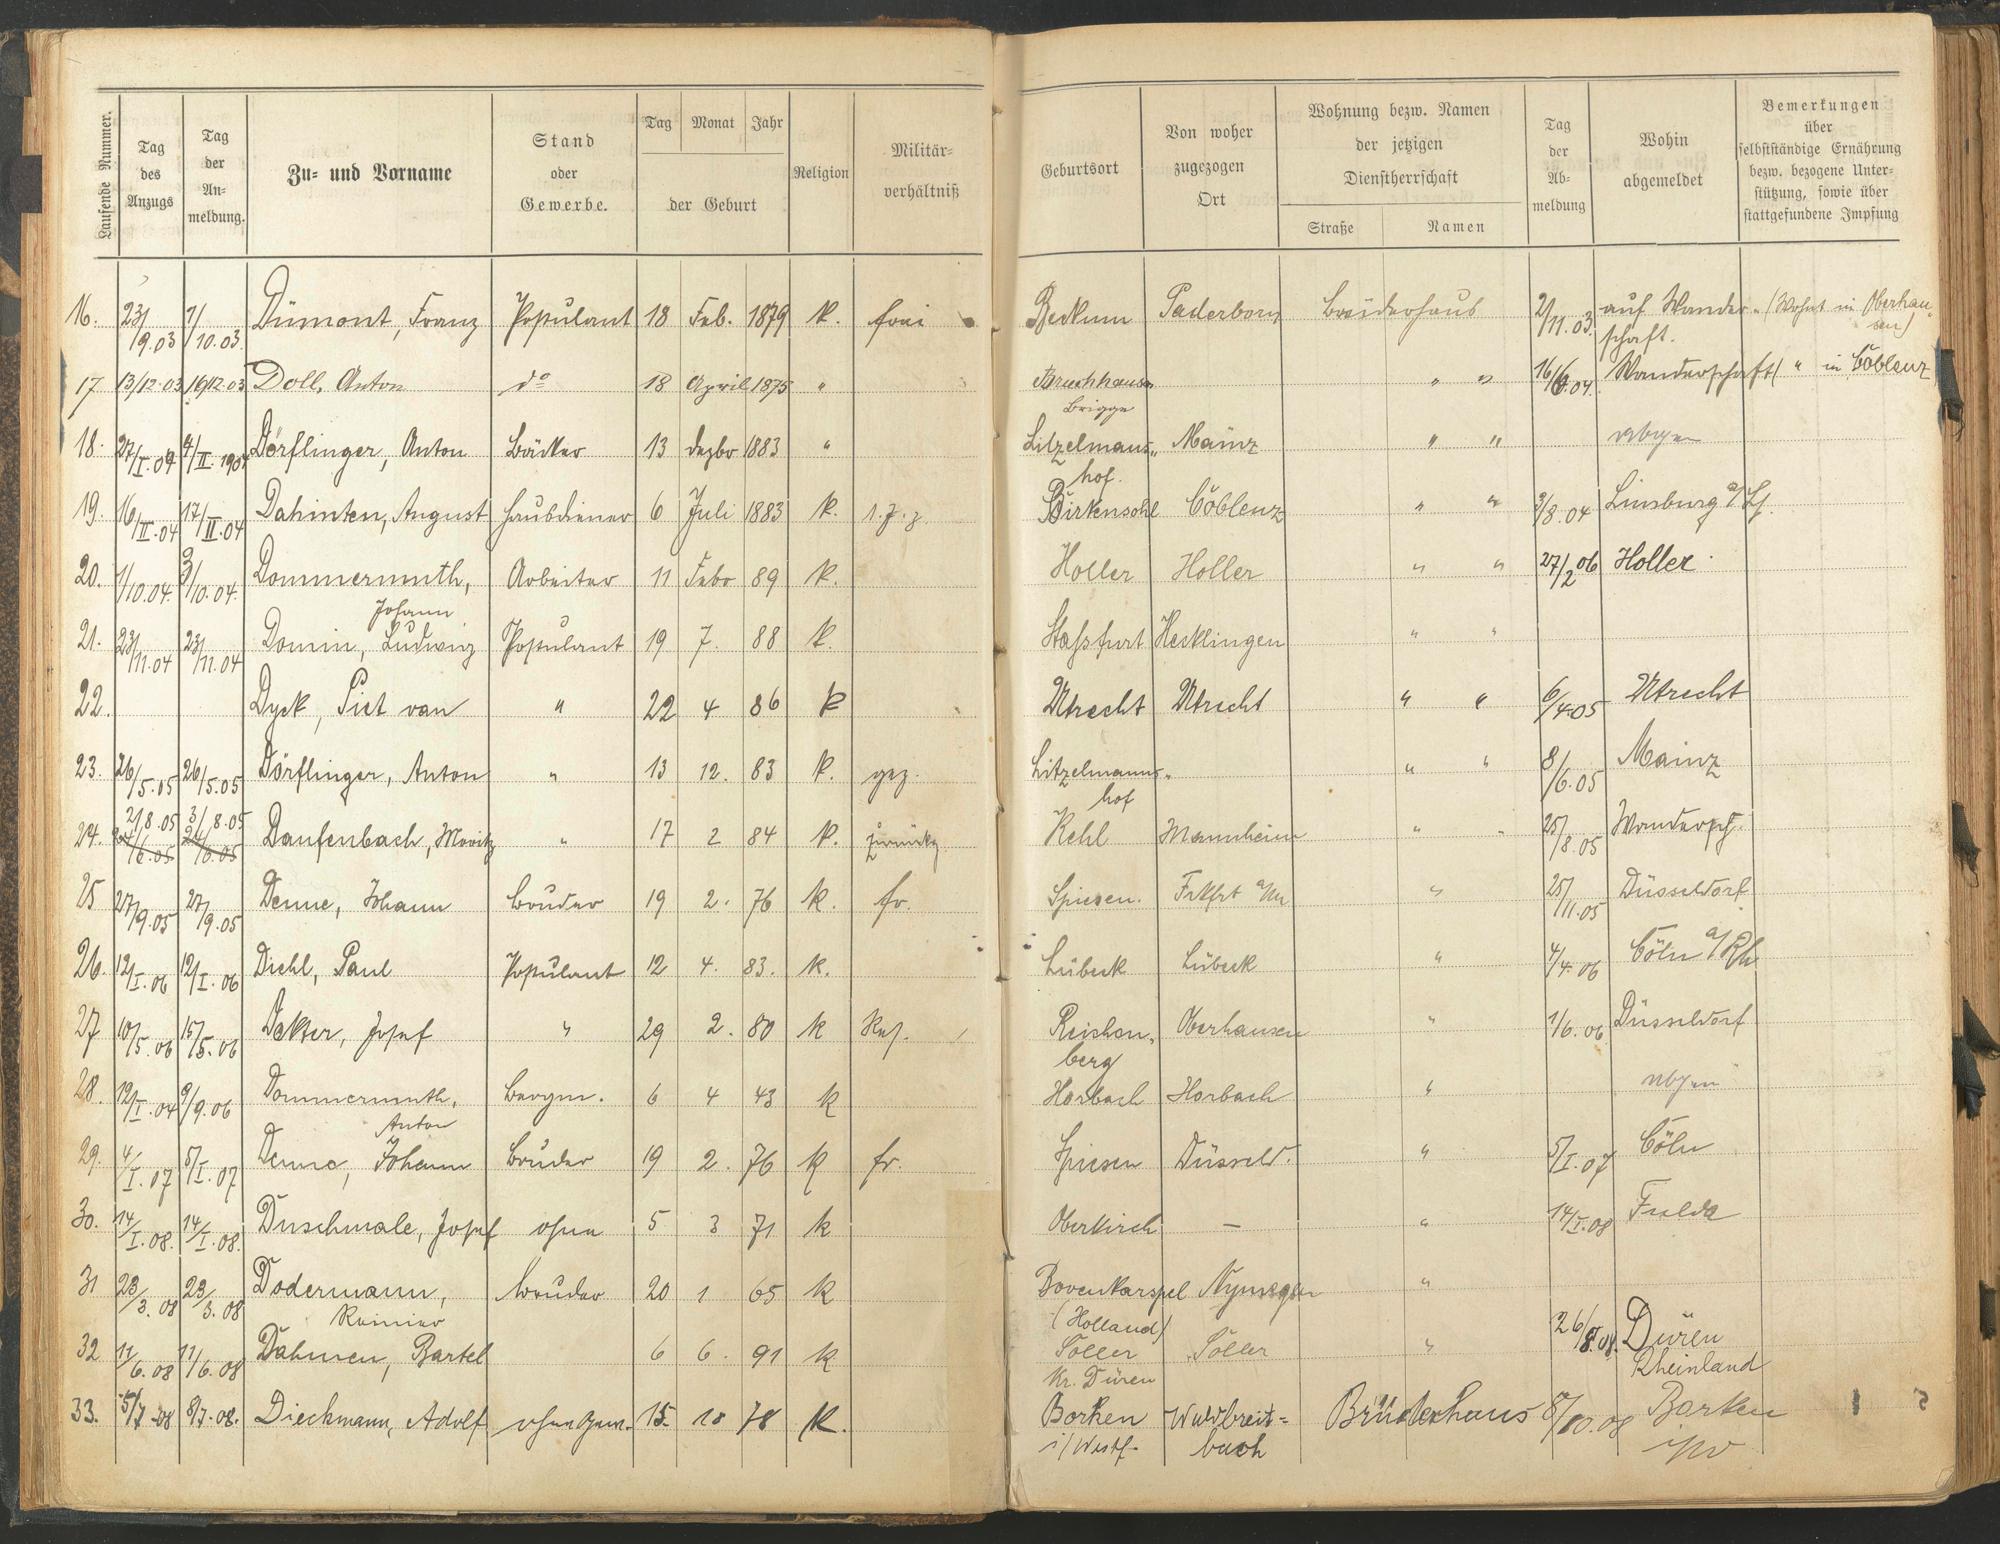 Laufende Nummer.
Tag des Anzugs
Tag der An- meldung.
Zu- und Vorname
Stand oder Gewerbe.
Tag Monat Jahr
der Geburt
Religion
Militär- verhältniß
Geburtsort
Von woher zugezogen Ort
Wohnung bezw. Namen der jetzigen Dienstherrschaft
Straße Namen
Tag der Ab- meldung
Wohin abgemeldet
Bemerkungen über selbstständige Ernährung bezw. bezogene Unter- stützung, sowie über stattgefundene Impfung
16. 23/9.03 1/10.03. Dümont, Franz Postulant 18 Feb. 1879 k. frei Beckum Paderborn Brüderhaus 2/11.03. auf Wander- (Wohnt in Oberhau-
schaft. sen)
17 13/12.03 16/12.03 Doll, Anton do 18 April 1875 " Bruchhausen " " 16/6.04. Wanderschaft ( " in Coblenz
Brigge
18. 27/I.04 4/II.1904 Dörflinger, Anton Bäcker 13 Dezbr 1883 " Litzelmans- Mainz " "
hof.
19. 16/II.04 17/II.04 Dahinten, August Hausdiener 6 Juli 1883 k. Birkensohl Coblenz " " 3/8.04 Limburg a/L.
20. 1/10.04. 3/10.04. Dommermuth, Arbeiter 11 Febr 89 k. Holler Holler " " 27/2 06 Holler.
Johann
21. 23/11.04 23/11.04 Domin, Ludwig Postulant 19 7. 88 k. Stassfurt Hecklingen " "
22. Dyck, Piet van " 22 4 86 k Utrecht Utrecht " " 6/4.05 Utrecht
23. 26/5.05 26/5.05 Dörflinger, Anton " 13 12. 83 k. gez. Litzelmanns- " " 8/6.05 Mainz
hof
2/8.05 3/8.05
24. 24/6.05 24/6.05 Daufenbach, Moritz " 17 2 84 k. Kehl Mannheim " " 25/8.05 Wandersch.
25 27/9.05 27/9.05 Denne, Johann Bruder 19 2. 76 k. fr. Spiesen. Frkfrt a/M " 25/11.05 Düsseldorf
26. 12/I.06 12/I.06 Diehl, Paul Postulant 12 4. 83. k. Lübeck Lübeck " 4/4.06 Cöln a/Rh
27 10/5.06 15/5.06 Dekter, Josef " 29 2. 80 k Res. Reichen- Oberhausen " 1/6.06 Düsseldorf
berg
28. 12/I.04 9/9.06 Dommermuth, Bergm. 6 4 43 k Horbach Horbach "
Anton
29. 4/I.07 5/I.07 Denne, Johann Bruder 19 2. 76 k fr. Spiesen Düsseld. " 5/I.07 Cöln
30. 14/I.08. 14/I.08. Duschmale, Josef ohne 5 3 71 k Oberkirch — " 14/I.08 Fulda
31 23/3.08 23/3.08 Dodermann, Bruder 20 1 65 k Bovenkarspel Nymegen "
Reinier (Holland)
32 11/6.08 11/6.08 Dahmen, Bartel 6 6. 91 k Soller Soller " 26/8.08. Düren
Kr. Düren Rheinland
33. 5/7.08 8/7.08. Dieckmann, Adolf ohne Gew. 15. 10 78 k. Borken Waldbreit= Brüderhaus 8/10.08 Borken
i/Westf. bach